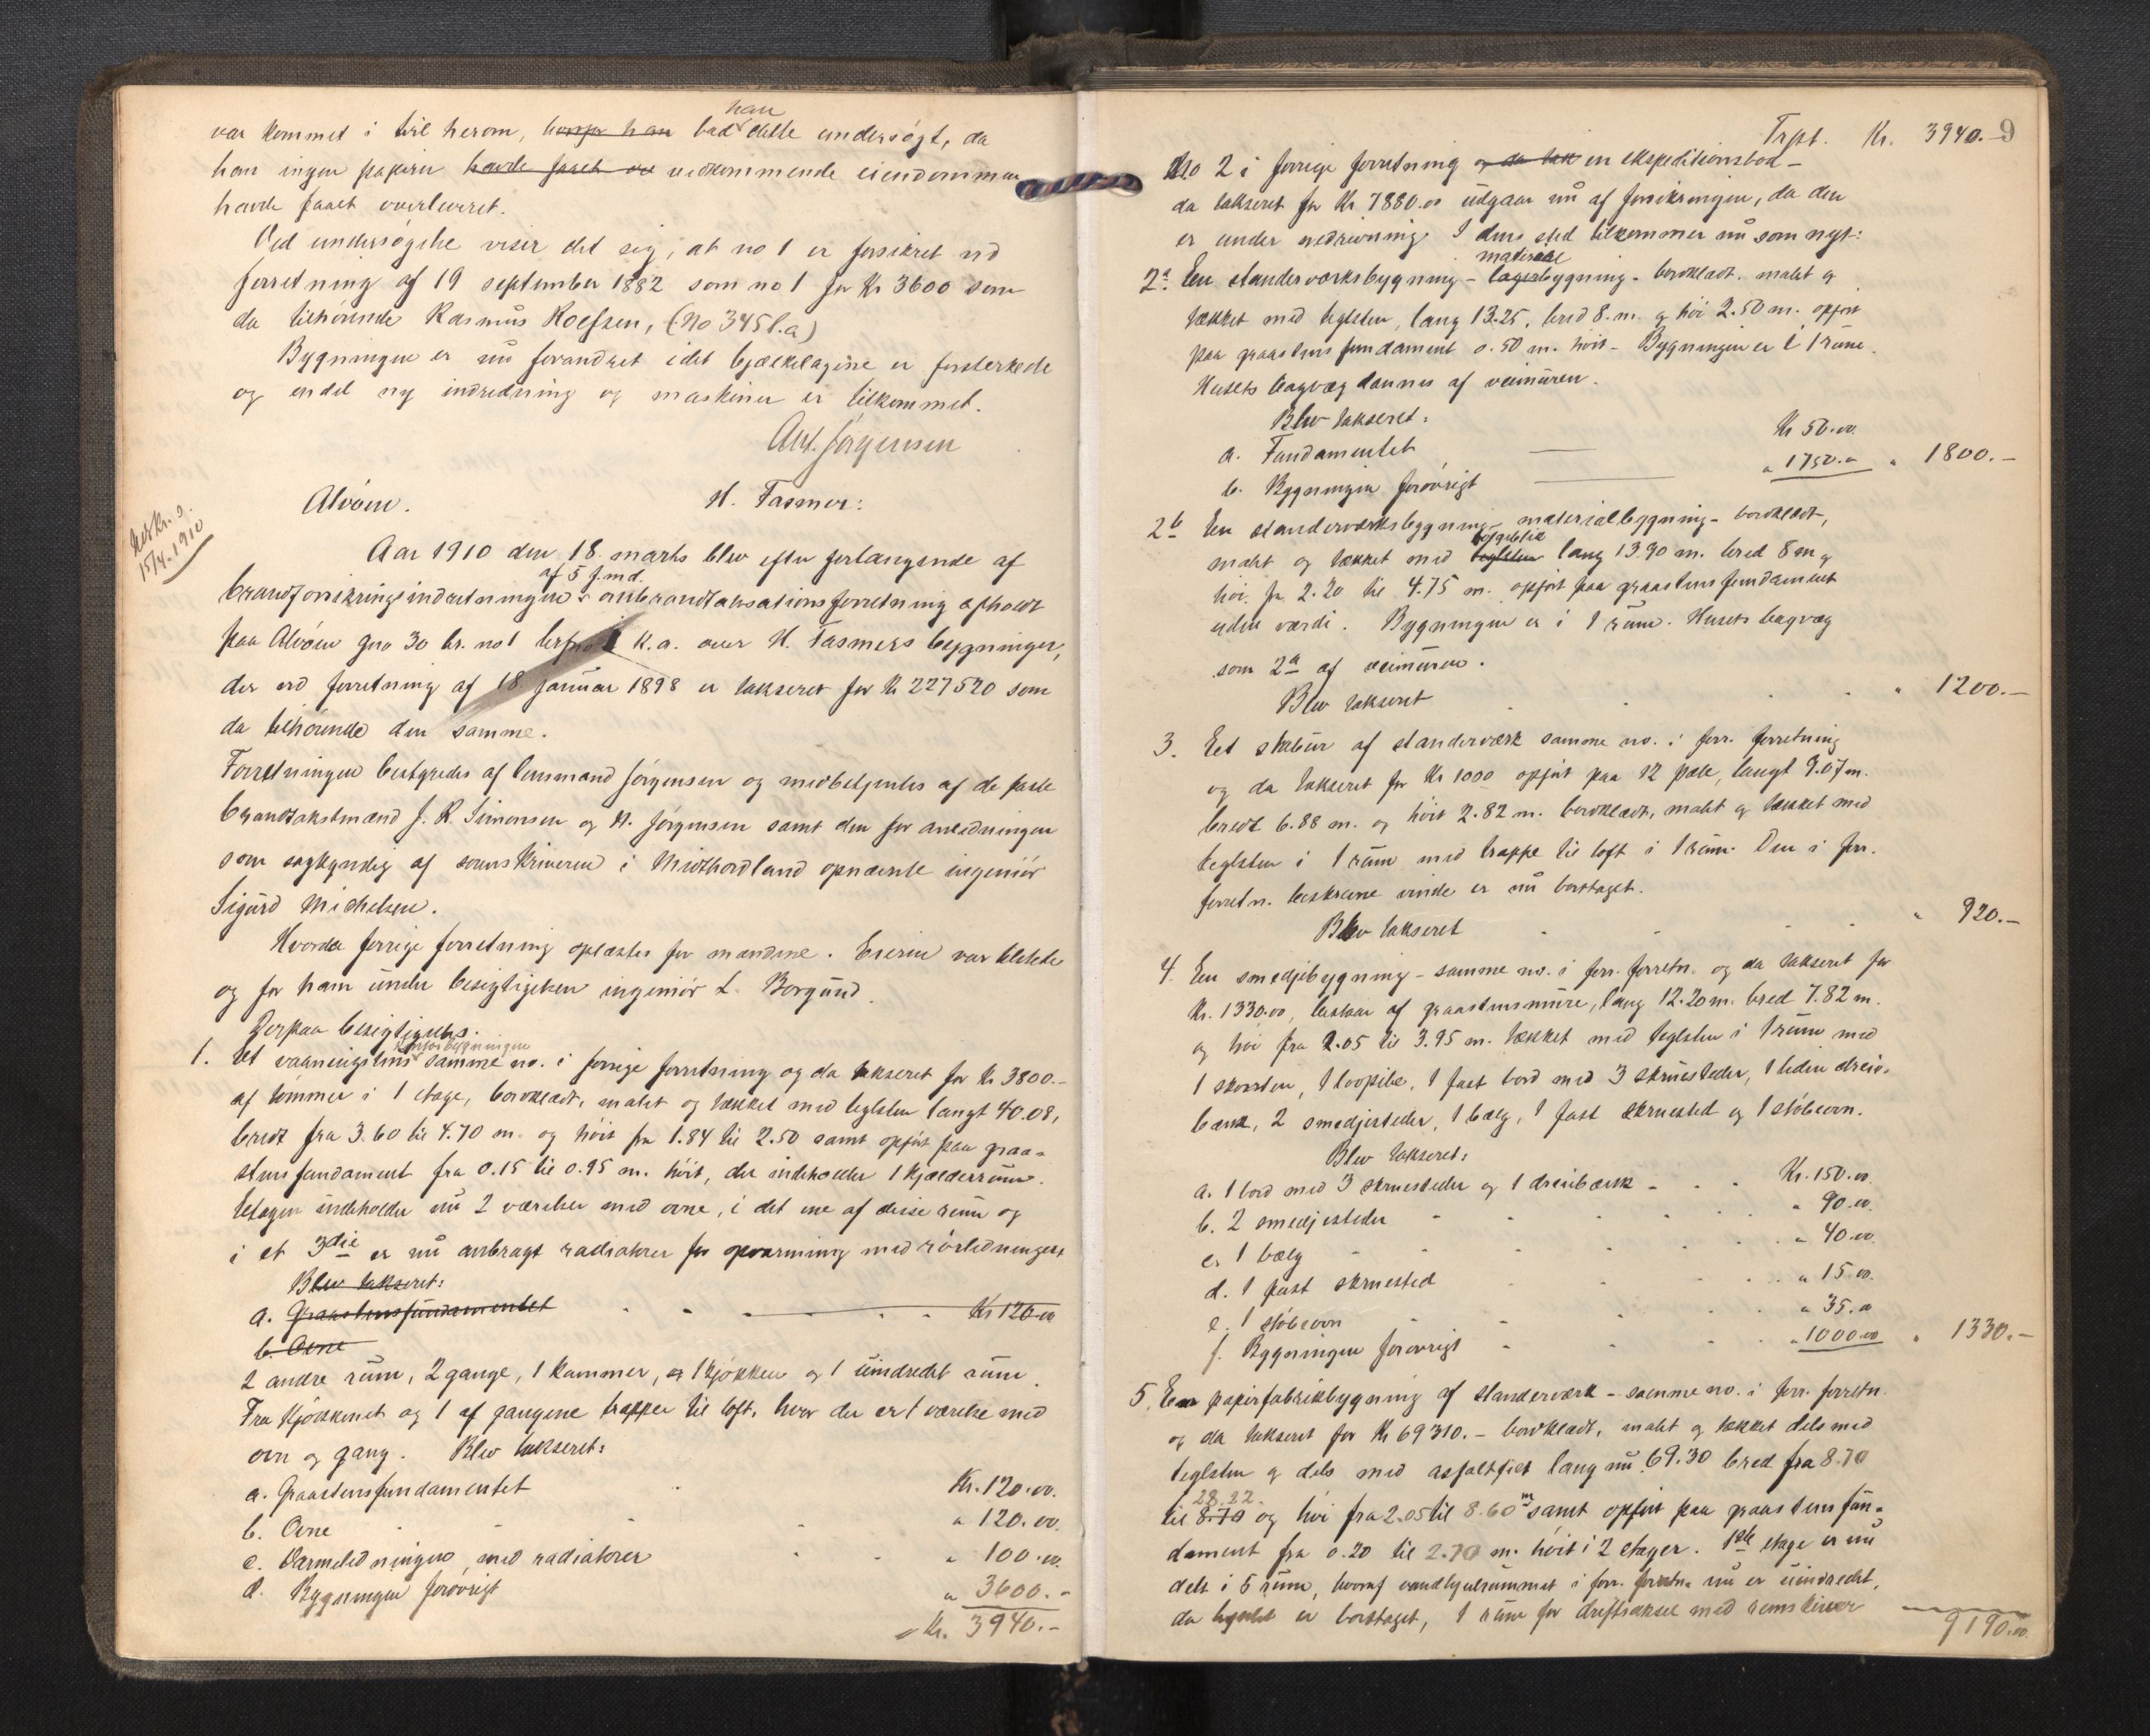 var kommet i tvil herom, hvorfor han bad han dette undersøgt, da
han ingen papirer havde faaet ve vedkommende eiendommen
havde faaet overleveret.
Ved undersøgelse viser det sig, at no 1 er forsikret ved
forretning af 19 september 1882 som no 1 for Kr 3600 som
da tilhørende Rasmus Roefsen, (No 345 l.a)
Bygningen er nu forandret idet bjælkelagene er forsterkede
og endel ny indredning og maskiner er tilkommet.
Ant. Jörgensen
Alvøen. H. Fasmer:
15/4.1910
Aar 1910 den 18. marts blev efter forlangende af
brandforsikringsindretningen af 5 f.md. ombrandtaksationsforretning afholdt
paa Alvøen gno 30 br. no 1 K.a. over H. Fasmers bygninger,
der ved forretning af 18 januar 1898 er takseret for Kr 227520 som
da tilhørende den samme.
Forretningen bestyredes af lensmand Jørgensen og medbetjentes af de faste
brandtakstmænd J. R. Simonsen og N. Jørgensen samt den for anledningen
som sagkyndig af sorenskriveren i Midthordland opnævnte ingeniør
Sigurd Michelsen.
Hvorda forrige forretning oplæstes for mændene. Eieren var tilstede
og for ham under besigtigelsen ingeniør L. Borgund.
Derpaa besigtigedes.
1. Et vaaningshus kontorbygningen samme no. i forrige forretning og da takseret for Kr 3800.-
af tømmer i 1 etage, bordklædt, malet og tækket med teglsten langt 40.08,
bredt fra 3.60 til 4.70 m. og høit fra 1.84 til 2.50 samt opført paa graa-
stensfundament fra 0.15 til 0.95 m. høit, der indeholder 1 kjælderrum.
Etagen indeholder nu 2 værelser med ovne, i det ene af disse rum og
i et 3die er nu anbragt radiatorer for opvarming med rørledninger,
Blev takseret:
a. Graastensfundamentet Kr 120.00
b. Ovne
2 andre rum, 2 gange, 1 kammer, og 1 kjøkken og 1 uindredet rum.
Fra kjøkkenet og 1 af gangene trapper til loft, hvor der er 1 værelse med
ovn og gang. Blev takseret:
a. Graastensfundamentet Kr. 120.00.
b. Ovne " 120.00.
c. Varmeledningen med radiatorer " 100.00.
d. Bygningen forøvrigt " 3600.-
Kr. 3940.-
9
Trpt. Kr. 3940.-
No 2 i forrige forretning og da tak en ekspeditionsbod -
da takseret for Kr 7880.00 udgaar nu af forsikringen, da den
er under nedrivning. I dens sted tilkommer nu som nyt:
2a. En standerværksbygning - lager materialebygning - bordklædt, malet og
tækket med teglsten, lang 13.25, bred 8. m. og høi 2.50 m. opført
paa graastensfundament 0.50 m. høit - Bygningen er i 1 rum.
Husets bagvæg dannes af veimuren.
Blev takseret:
a. Fundamentet Kr 50.00.
b. Bygningen forøvrigt " 1750.00 " 1800.-
2b En standerværksbyggning - materialbygning - bordklædt,
malet og tækket med teglsten bølgeblik lang 13.90 m. bred 8 m og
høi fra 2.20 til 4.75 m. opført paa graastensfundament
uden værdi. Bygningen er i 1 rum. Husets bagvæg
som 2a af veimuren.
Blev takseret " 1200.-
3. Eet stabur af standerværk samme no. i forr. forretning
og da takseret for Kr 1000 opført paa 12 pæle, langt 9.07 m.
bredt 6.88 m. og høit 2.82 m. bordklædt, malet og tækket med
teglsten i 1 rum med trappe til loft i 1 rum. Den i forr.
forretn. beskrevne vinde er nu borttaget.
Blev takseret " 920.-
4. En smedjebygning - samme no. i forr. forretn. og da takseret for
Kr. 1330.00, bestaar af graastensmure, lang 12.20 m. bred 7.82 m.
og høi fra 2.05 til 3.95 m. tækket med teglsten i 1 rum med
1 skorsten, 1 loopibe, 1 fast bord med 3 skruesteder, 1 liden dreie-
bænk, 2 smedjesteder, 1 bælg, 1 fast skruested og 1 støbeovn.
Blev takseret:
a. 1 bord med 3 skruesteder og 1 dreiebænk Kr. 150.00.
b. 2 smedjesteder " 90.00.
c. 1 bælg " 40.00.
d. 1 fast skruested " 15.00.
e. 1 støbeovn " 35.00
f. Bygningen forøvrigt " 1000.00 " 1330.-
5. En papirfabrikbygning af standerværk - samme no. i forr. forretn.
og da takseret for Kr 69310.- bordklædt, malet og tækket dels med
teglsten og dels med asfaltfilt lang nu 69.30 bred fra 8.70
til 8.70 28.22. og høi fra 2.05 til 8.60 m samt opført paa graastensfun-
dament fra 0.20 til 2.70 m. høit i 2 etager. 1ste etage er nu
delt i 5 rum, hvoraf vandhjulrummet i forr. forretn. nu er uindredet,
da hjulet er borttaget, 1 rum for driftsaksel med remskiver
9190.00.